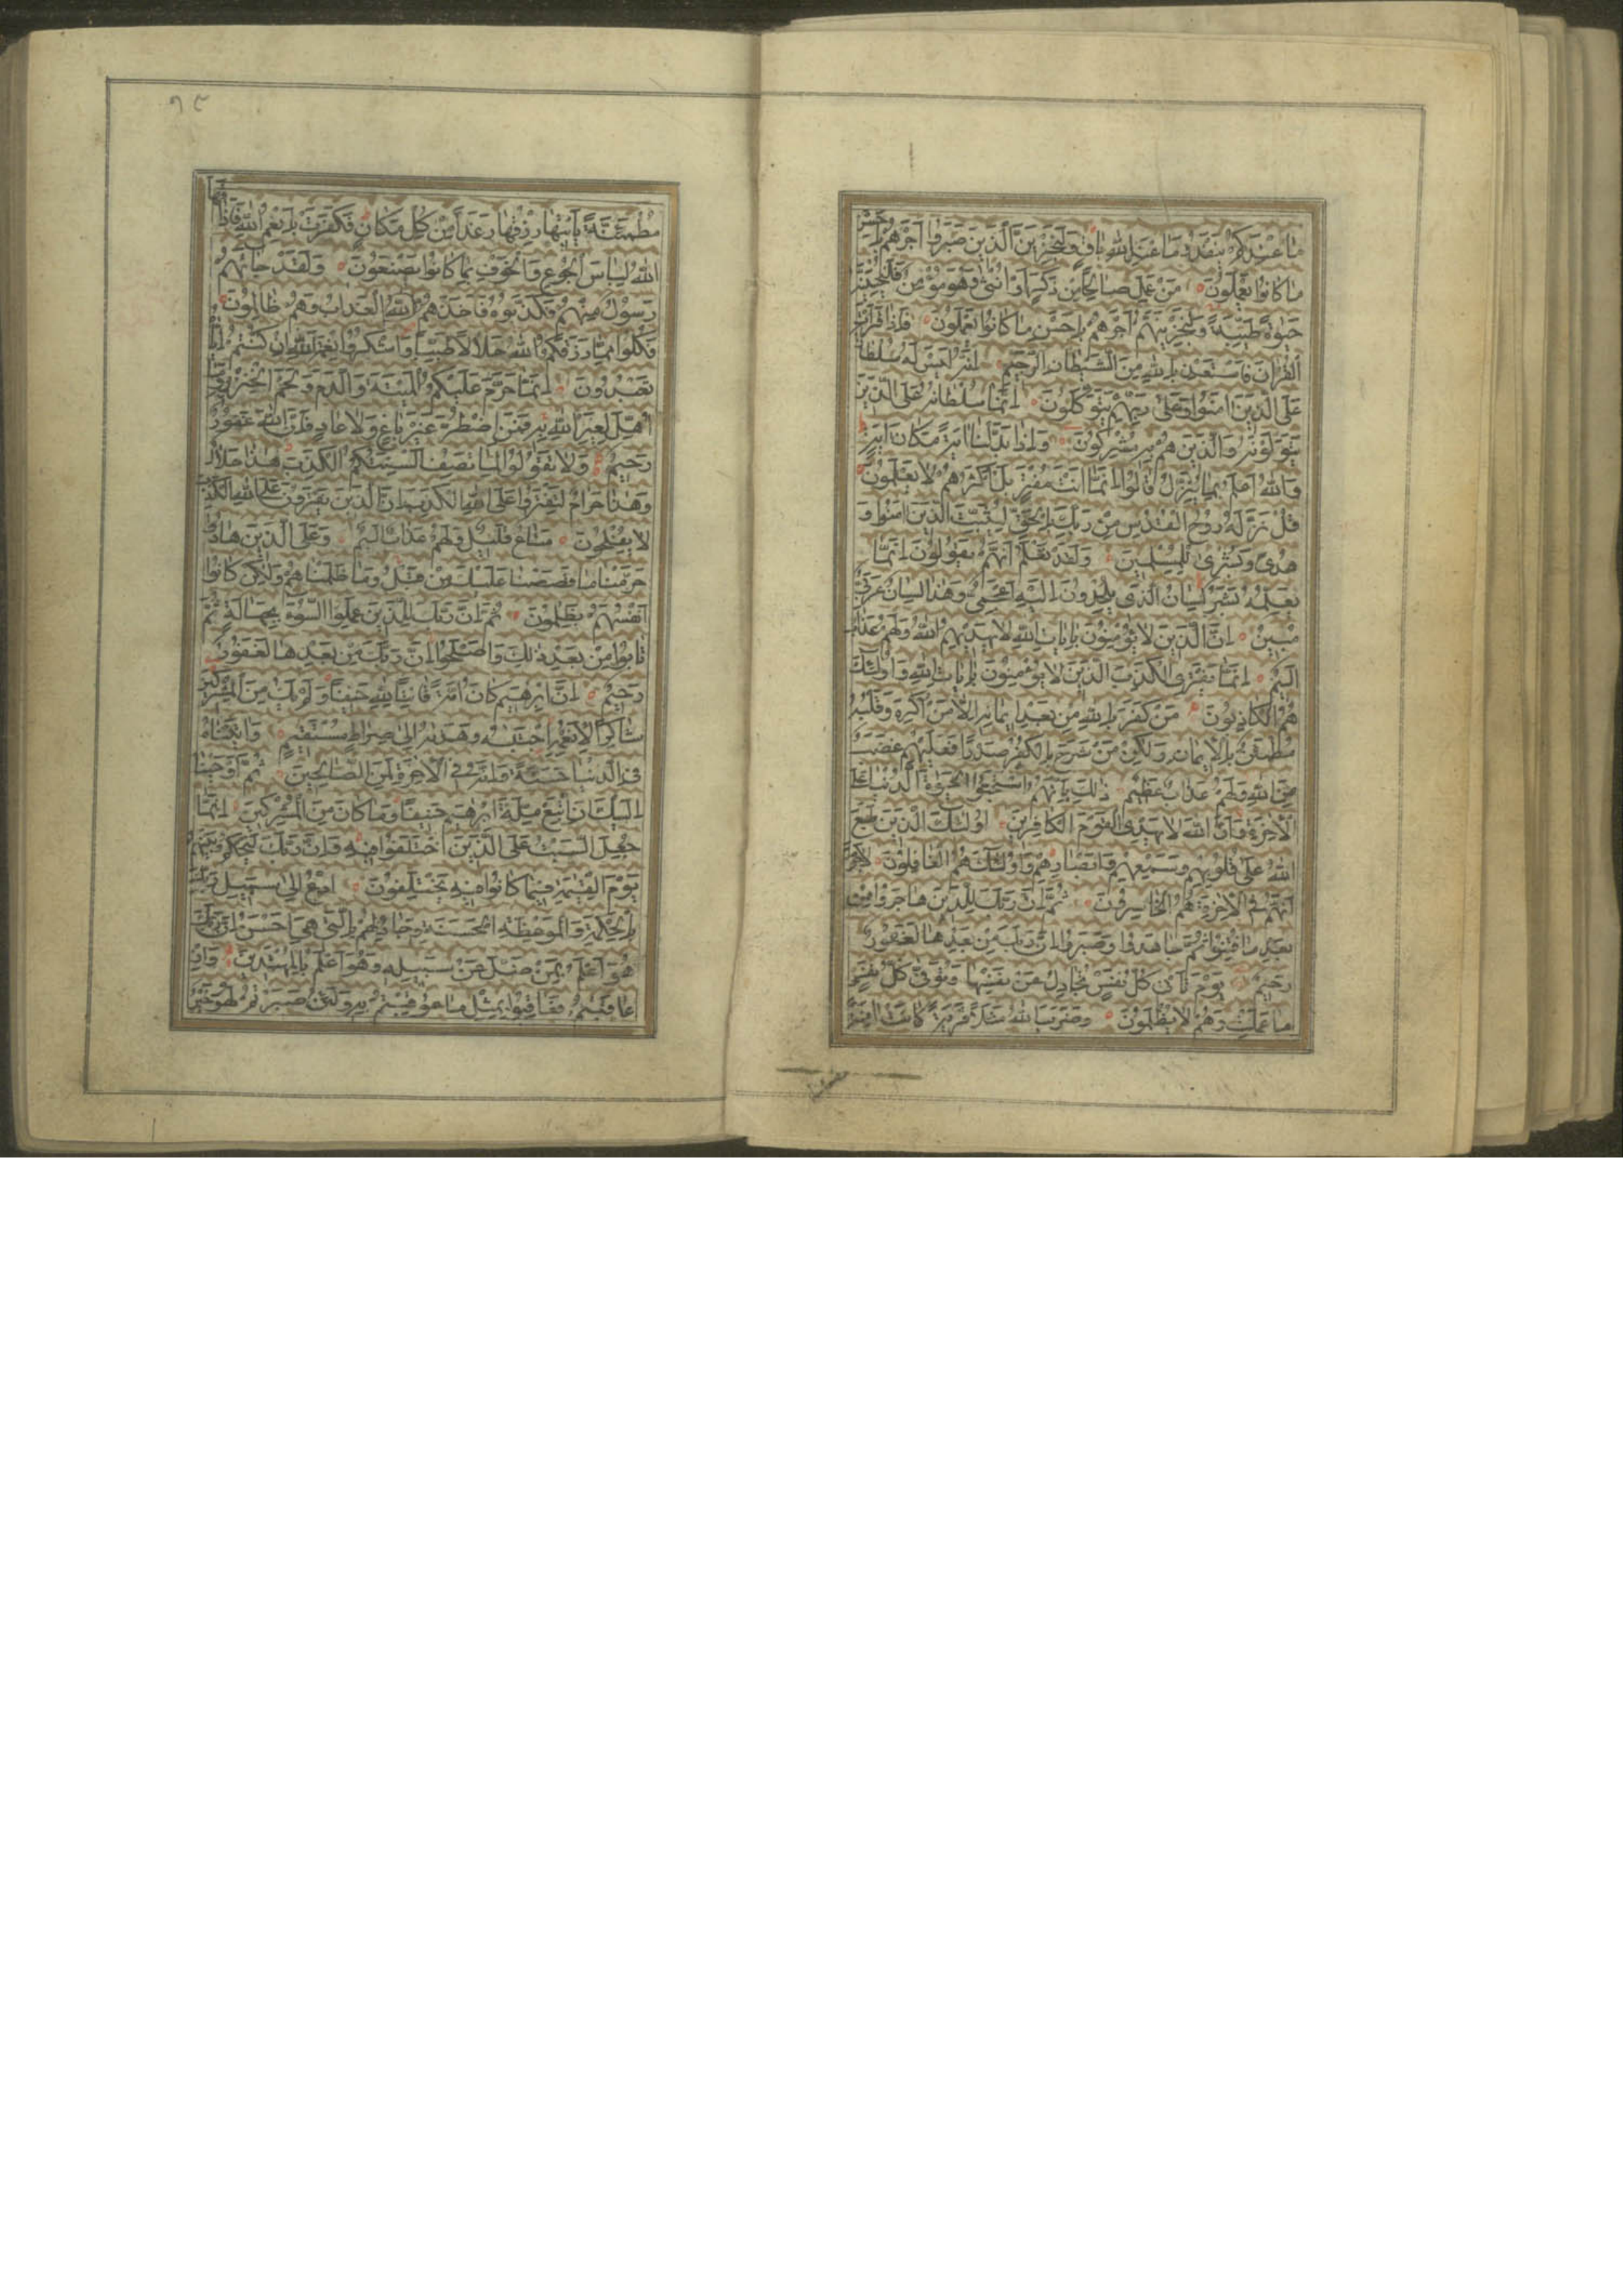 ما عندكم ينفد وما عند الله باق ولنجزين الذين صبروا اجرهم باحسن
ما كانوا يعملون من عمل صالحا من ذكر او انثى وهو مؤمن فلنحيينه
حيوة طيبة ولنجزينهم اجرهم باحسن ما كانوا يعملون فاذا قرات
القران فاستعذ بالله من الشيطان الرجيم انه ليس له سلطان
على الذين امنوا وعلى ربهم يتوكلون انما سلطانه على الذين
يتولونه والذين هم به مشركون واذا بدلنا اية مكان اية
والله اعلم بما ينزل قالوا انما انت مفتر بل اكثرهم لا يعلمون
قل نزله روح القدس من ربك بالحق ليثبت الذين امنوا و
هدى وبشرى للمسلمين ولقد نعلم انهم يقولون انما
يعلمه بشر لسان الذى يلحدون اليه اعجمى وهذا لسان عربى
مبين ان الذين لا يؤمنون بايات الله لا يهديهم الله ولهم عذاب
اليم انما يفترى الكذب الذين لا يؤمنون بايات الله واولئك
هم الكاذبون من كفر بالله من بعد ايمانه الا من اكره وقلبه
مطمئن بالايمان ولكن من شرح بالكفر صدرا فعليهم غضب
من الله ولهم عذاب عظيم ذلك بانهم استحبوا الحيوة الدنيا على
الاخرة وان الله لا يهدى القوم الكافرين اولئك الذين طبع
الله على قلوبهم وسمعهم وابصارهم واولئك هم الغافلون لا جرم
انهم فى الاخرة هم الخاسرون ثم ان ربك للذين هاجروا من
بعد ما فتنوا ثم جاهدوا وصبروا ان ربك من بعدها لغفور
رحيم يوم تاتى كل نفس تجادل عن نفسها وتوفى كل نفس
ما عملت وهم لا يظلمون وضرب الله مثلا قرية كانت امنة
٩٤
مطمئنة ياتيها رزقها رغدا من كل مكان فكفرت بانعم الله فاذاقها
الله لباس الجوع والخوف بما كانوا يصنعون ولقد جاءهم
رسول منهم فكذبوه فاخذهم العذاب وهم ظالمون
فكلوا مما رزقكم الله حلالا طيبا واشكروا نعمة الله ان كنتم اياه
تعبدون انما حرم عليكم الميتة والدم ولحم الخنزير وما
اهل لغير الله به فمن اضطر غير باغ ولا عاد فان الله غفور
رحيم ولا تقولوا لما تصف السنتكم الكذب هذا حلال
وهذا حرام لتفتروا على الله الكذب ان الذين يفترون على الله الكذب
لا يفلحون متاع قليل ولهم عذاب اليم وعلى الذين هادوا
حرمنا ما قصصنا عليك من قبل وما ظلمناهم ولكن كانوا
انفسهم يظلمون ثم ان ربك للذين عملوا السوء بجهالة ثم
تابوا من بعد ذلك واصلحوا ان ربك من بعدها لغفور
رحيم ان ابرهيم كان امة قانتا لله حنيفا ولم يك من المشركين
شاكرا لانعمه اجتبيه وهديه الى صراط مستقيم واتيناه
فى الدنيا حسنة وانه فى الاخرة لمن الصالحين ثم اوحينا
اليك ان اتبع ملة ابرهيم حنيفا وما كان من المشركين انما
جعل السبت على الذين اختلفوا فيه وان ربك ليحكم بينهم
يوم القيمة فيما كانوا فيه يختلفون ادع الى سبيل ربك
بالحكمة والموعظة الحسنة وجادلهم بالتى هى احسن ان ربك
هو اعلم بمن ضل عن سبيله وهو اعلم بالمهتدين وان
عاقبتم فعاقبوا بمثل ما عوقبتم به ولئن صبرتم لهو خير